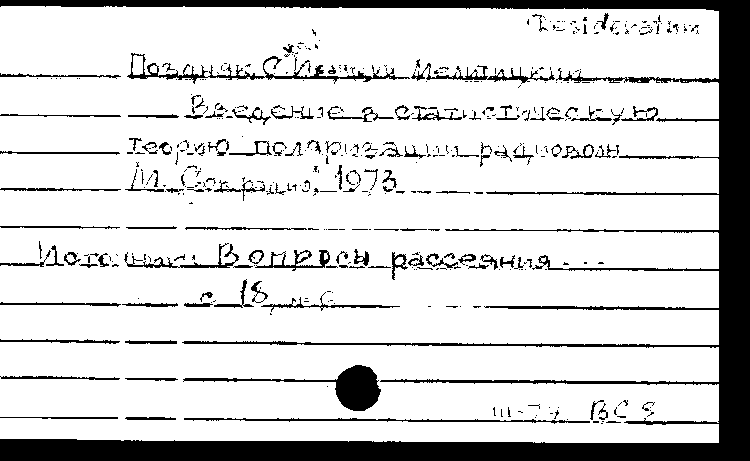 Desideratum
Поздняк С. Мелитицкий
Введение в статистическую
теорию поляризации радиоволн
М. Сов. радио, 1973
Источник: Вопросы рассеяния...
с 18, № 6
III-74 ВСЕ